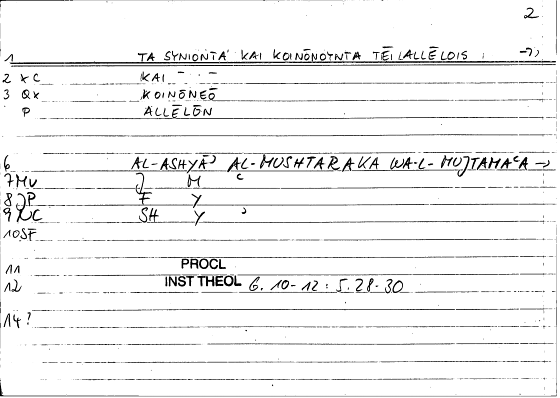 2
1 TA SYNIONTA KAI KOINŌNOYNTA TĒI ALLĒLOIS : →)
2 XC KAI - · -
3 QX KOINŌNEŌ
P ALLĒLŌN
6 AL-ASHYĀʾ AL-MUSHTARAKA WA-L-MUJTAMAʿA →
7 MV J M ʿ
8 JP F Y
9 XC SH Y ʾ
10 SF
11 PROCL
12 INST THEOL 6. 10-12 : 5.28-30
14 ?